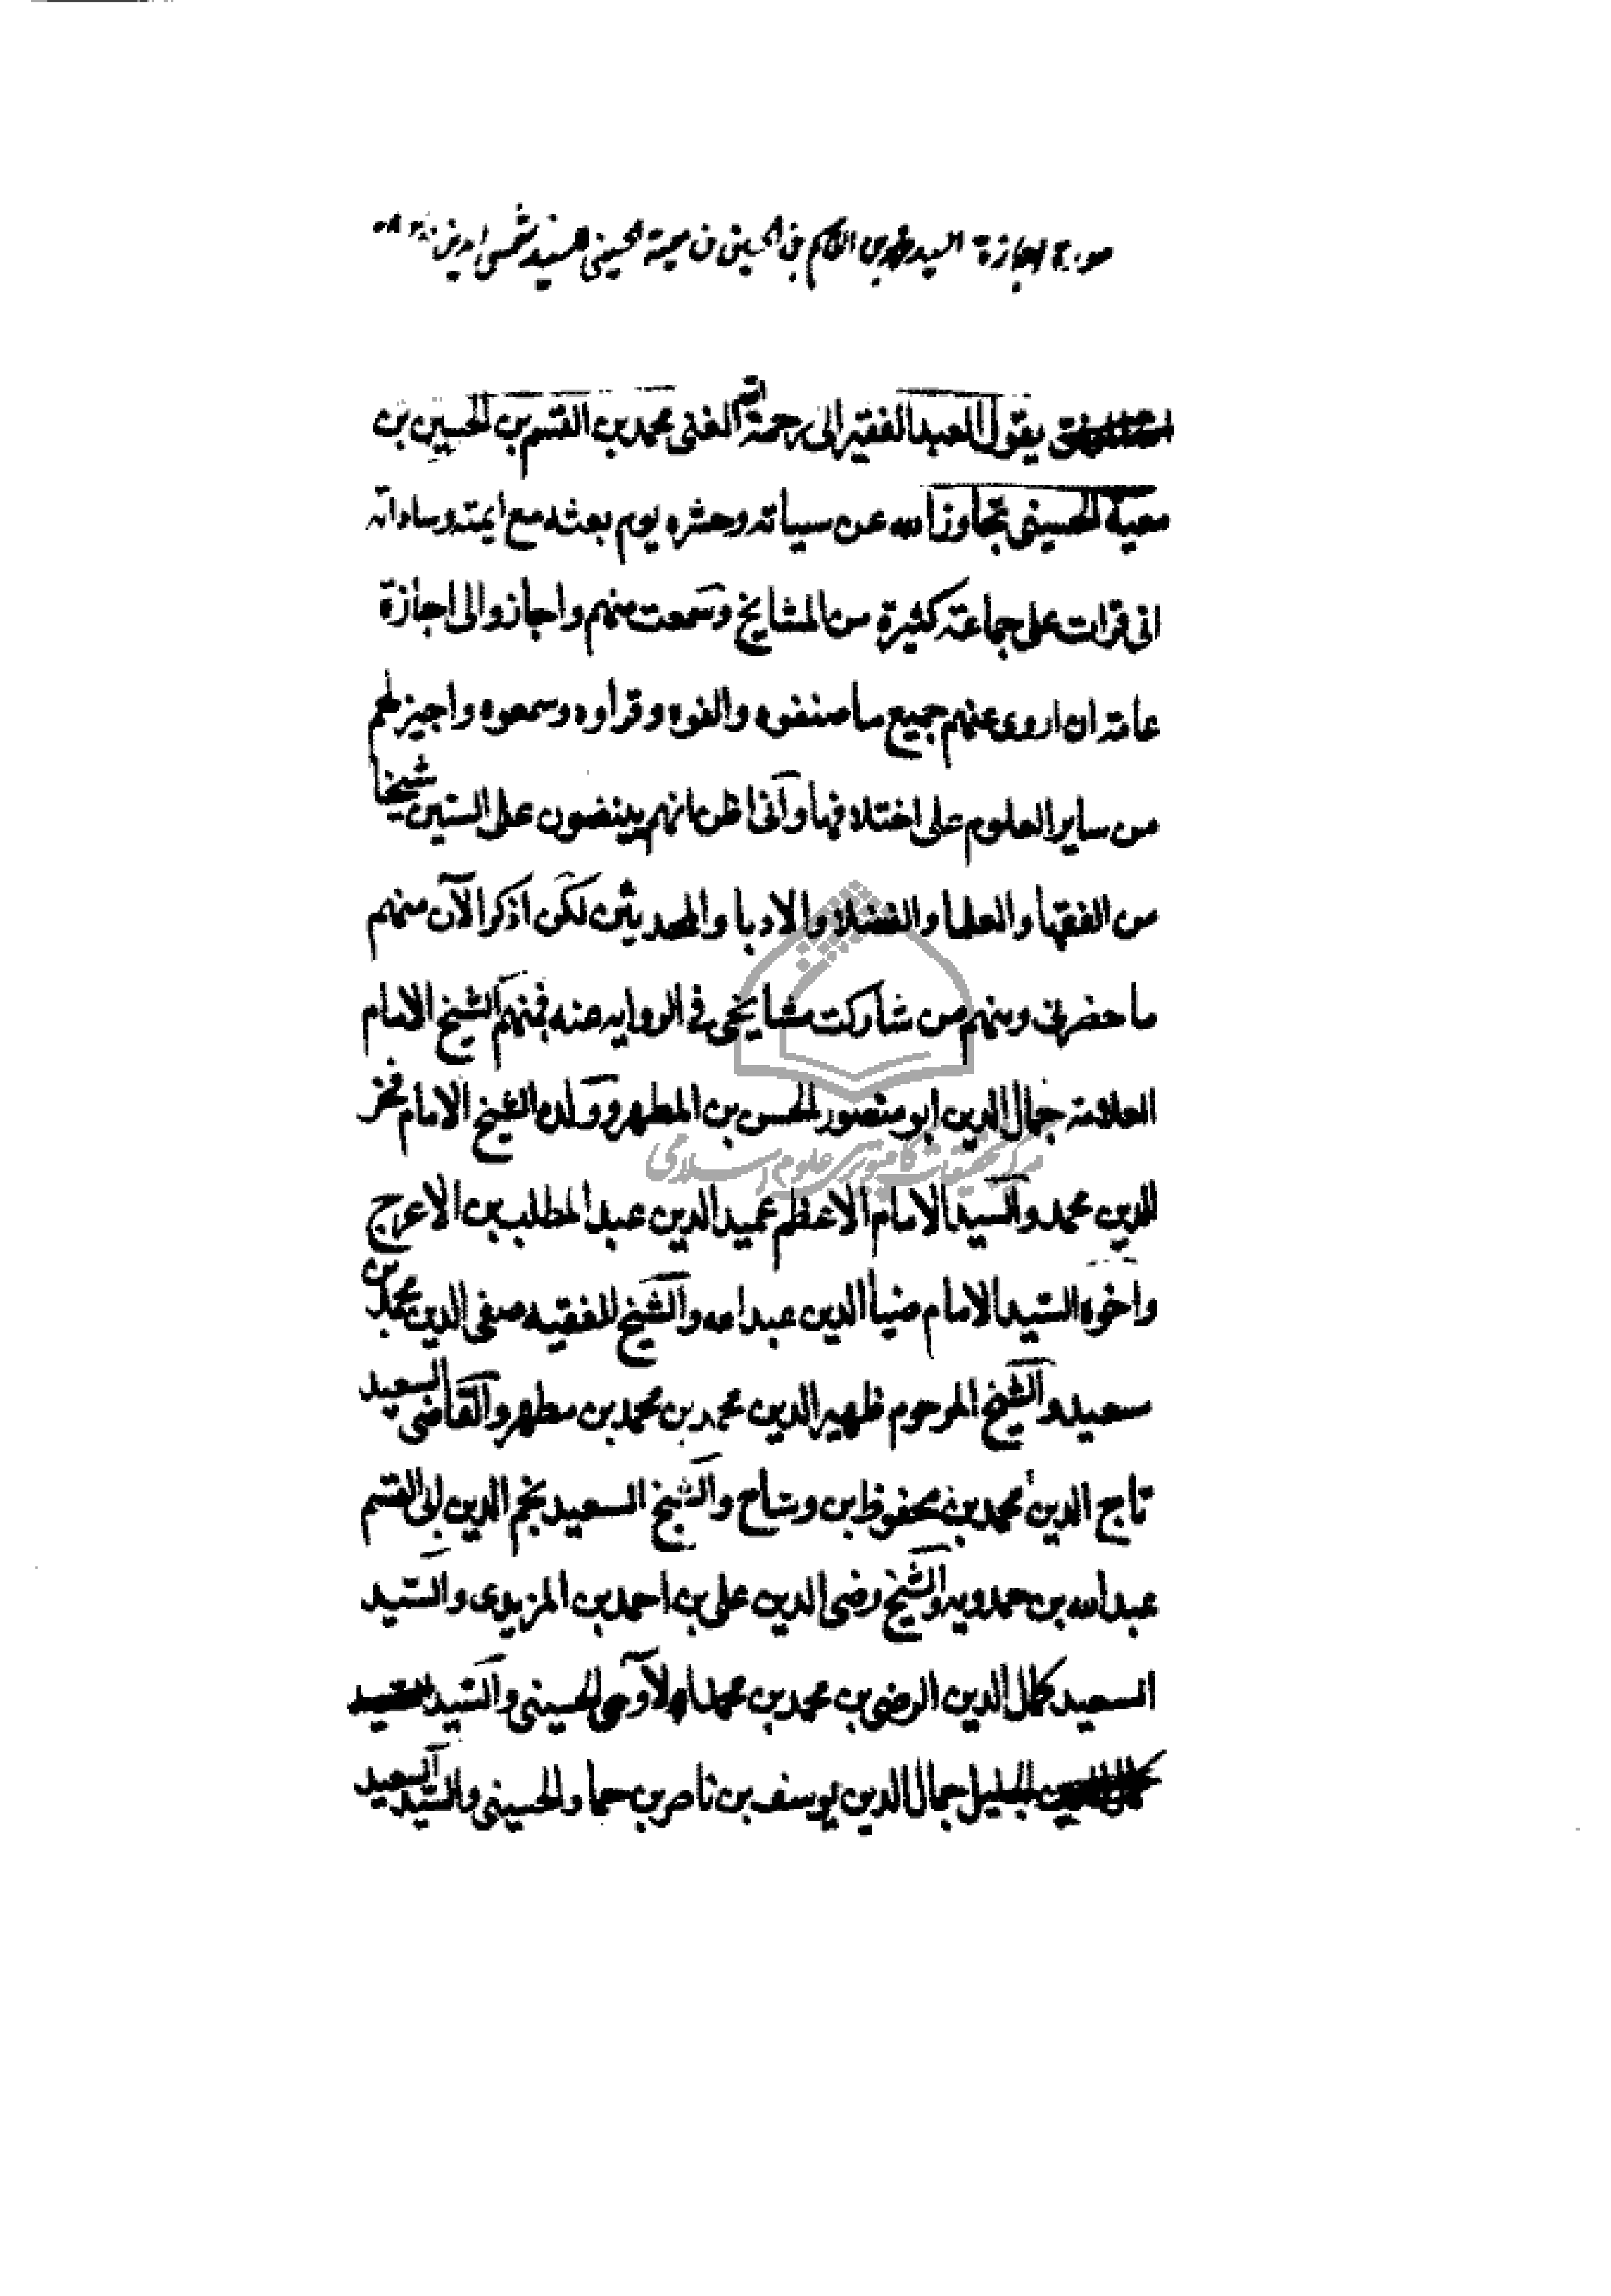 صورة اجازة السيد محمد بن القاسم بن الحسين بن معية الحسيني للسيد شمس الدين
يقول العبد الفقير الى رحمة الله الغنى محمد بن القسم بن الحسين بن
معية الحسيني تجاوز الله عن سياته وحشره يوم بعثه مع ايمته وساداته
انى قرات على جماعة كثيرة من المشايخ وسمعت منهم واجازوا لى اجازة
عامة ان اروى عنهم جميع ما صنفوه والفوه وقراوه وسمعوه واجيز لهم
من ساير العلوم على اختلافها وانى اظن انهم ينيفون على الستين شيخا
من الفقها والعلما والفضلا والادبا والمحدثين لكن اذكر الآن منهم
ما حضرنى ومنهم من شاركت مشايخى فى الروايه عنه فمنهم الشيخ الامام
العلامة جمال الدين ابو منصور الحسن بن المطهر وولده الشيخ الامام فخر
الدين محمد والسيد الامام الاعظم عميد الدين عبد المطلب بن الاعرج
واخوه السيد الامام ضيا الدين عبد الله والشيخ الفقيه صفى الدين محمد بن
سعيد والشيخ المرحوم ظهير الدين محمد بن محمد بن مطهر والقاضى السعيد
تاج الدين محمد بن محفوظ بن وشاح والشيخ السعيد نجم الدين ابى القسم
عبد الله بن حمدويه والشيخ رضى الدين على بن احمد بن المزيدى والسيد
السعيد كمال الدين الرضى بن محمد بن محمد الآوى الحسينى والسيد
الجليل جمال الدين يوسف بن ناصر بن حماد الحسينى والسيد السعيد
مركز تحقيقات كامپيوترى علوم اسلامى